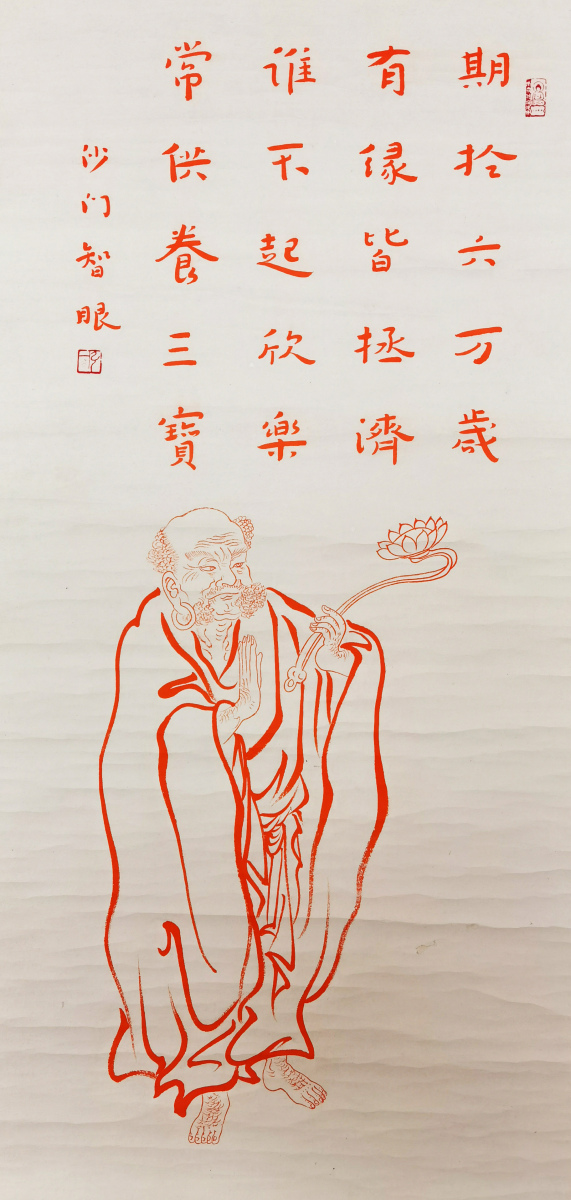 期扵六万歲
有缘皆拯濟
谁不起欣樂
常供養三寶
沙门智眼